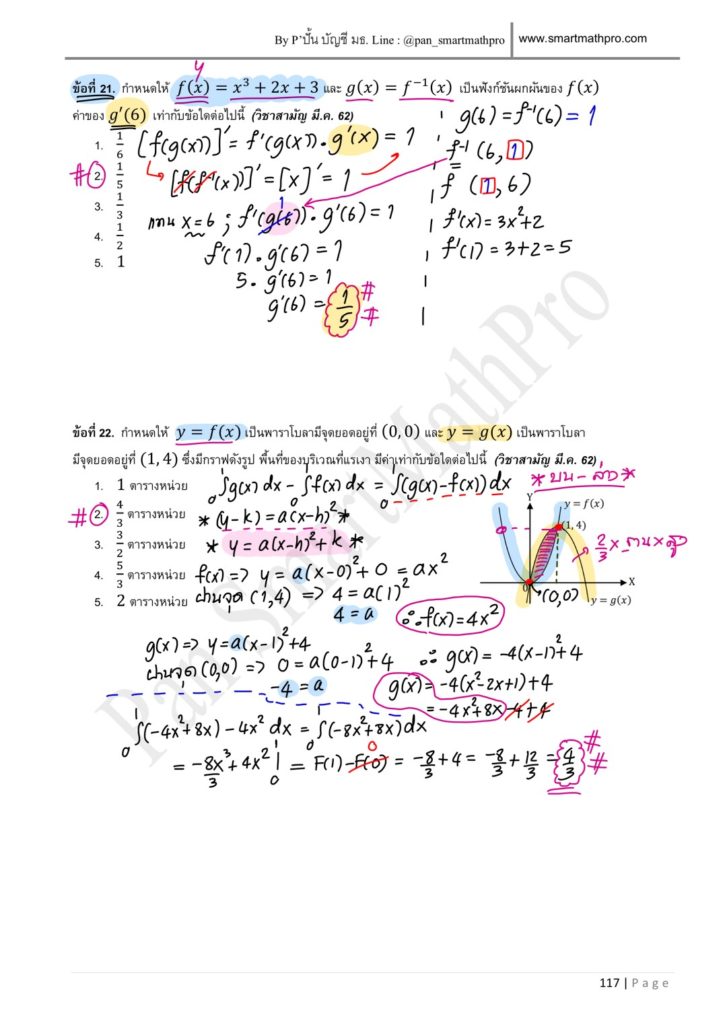 By P'ปั้น บัญชี มธ. Line : @pan_smartmathpro | www.smartmathpro.com
y
ข้อที่ 21. กำหนดให้ f(x) = x³ + 2x + 3 และ g(x) = f⁻¹(x) เป็นฟังก์ชันผกผันของ f(x)
ค่าของ g′(6) เท่ากับข้อใดต่อไปนี้ (วิชาสามัญ มี.ค. 62)
1. 1/6
#2. 1/5
3. 1/3
4. 1/2
5. 1
[f(g(x))]′ = f′(g(x))·g′(x) = 1
[f(f⁻¹(x))]′ = [x]′ = 1
แทน x=6 ; f′(g(6))·g′(6) = 1
1
f′(1)·g′(6) = 1
5·g′(6) = 1
g′(6) = 1/5 # #
g(6) = f⁻¹(6) = 1
f⁻¹(6, 1)
=
f (1, 6)
f′(x) = 3x²+2
f′(1) = 3+2 = 5
ข้อที่ 22. กำหนดให้ y = f(x) เป็นพาราโบลามีจุดยอดอยู่ที่ (0, 0) และ y = g(x) เป็นพาราโบลา
มีจุดยอดอยู่ที่ (1, 4) ซึ่งมีกราฟดังรูป พื้นที่ของบริเวณที่แรเงา มีค่าเท่ากับข้อใดต่อไปนี้ (วิชาสามัญ มี.ค. 62)
1. 1 ตารางหน่วย
#2. 4/3 ตารางหน่วย
3. 3/2 ตารางหน่วย
4. 5/3 ตารางหน่วย
5. 2 ตารางหน่วย
∫₀¹g(x) dx − ∫₀¹f(x) dx = ∫₀¹(g(x)−f(x)) dx
* บน - ล่าง *
* (y−k) = a(x−h)² *
* y = a(x−h)²+k *
f(x) => y = a(x−0)²+0 = ax²
ผ่านจุด (1,4) => 4 = a(1)²
4 = a
∴ f(x) = 4x²
Y
y = f(x)
(1, 4)
2/3 × ฐาน × สูง
X
0
(0,0)
y = g(x)
g(x) => y = a(x−1)²+4
ผ่านจุด (0,0) => 0 = a(0−1)²+4
−4 = a
∴ g(x) = −4(x−1)²+4
g(x) = −4(x²−2x+1)+4
= −4x²+8x−4+4
∫₀¹(−4x²+8x)−4x² dx = ∫₀¹(−8x²+8x)dx
= −8x³/3 + 4x² |₀¹ = F(1)−F(0) = −8/3 + 4 = −8/3 + 12/3 = 4/3 # #
0
Pan SmartMathPro
117 | Page